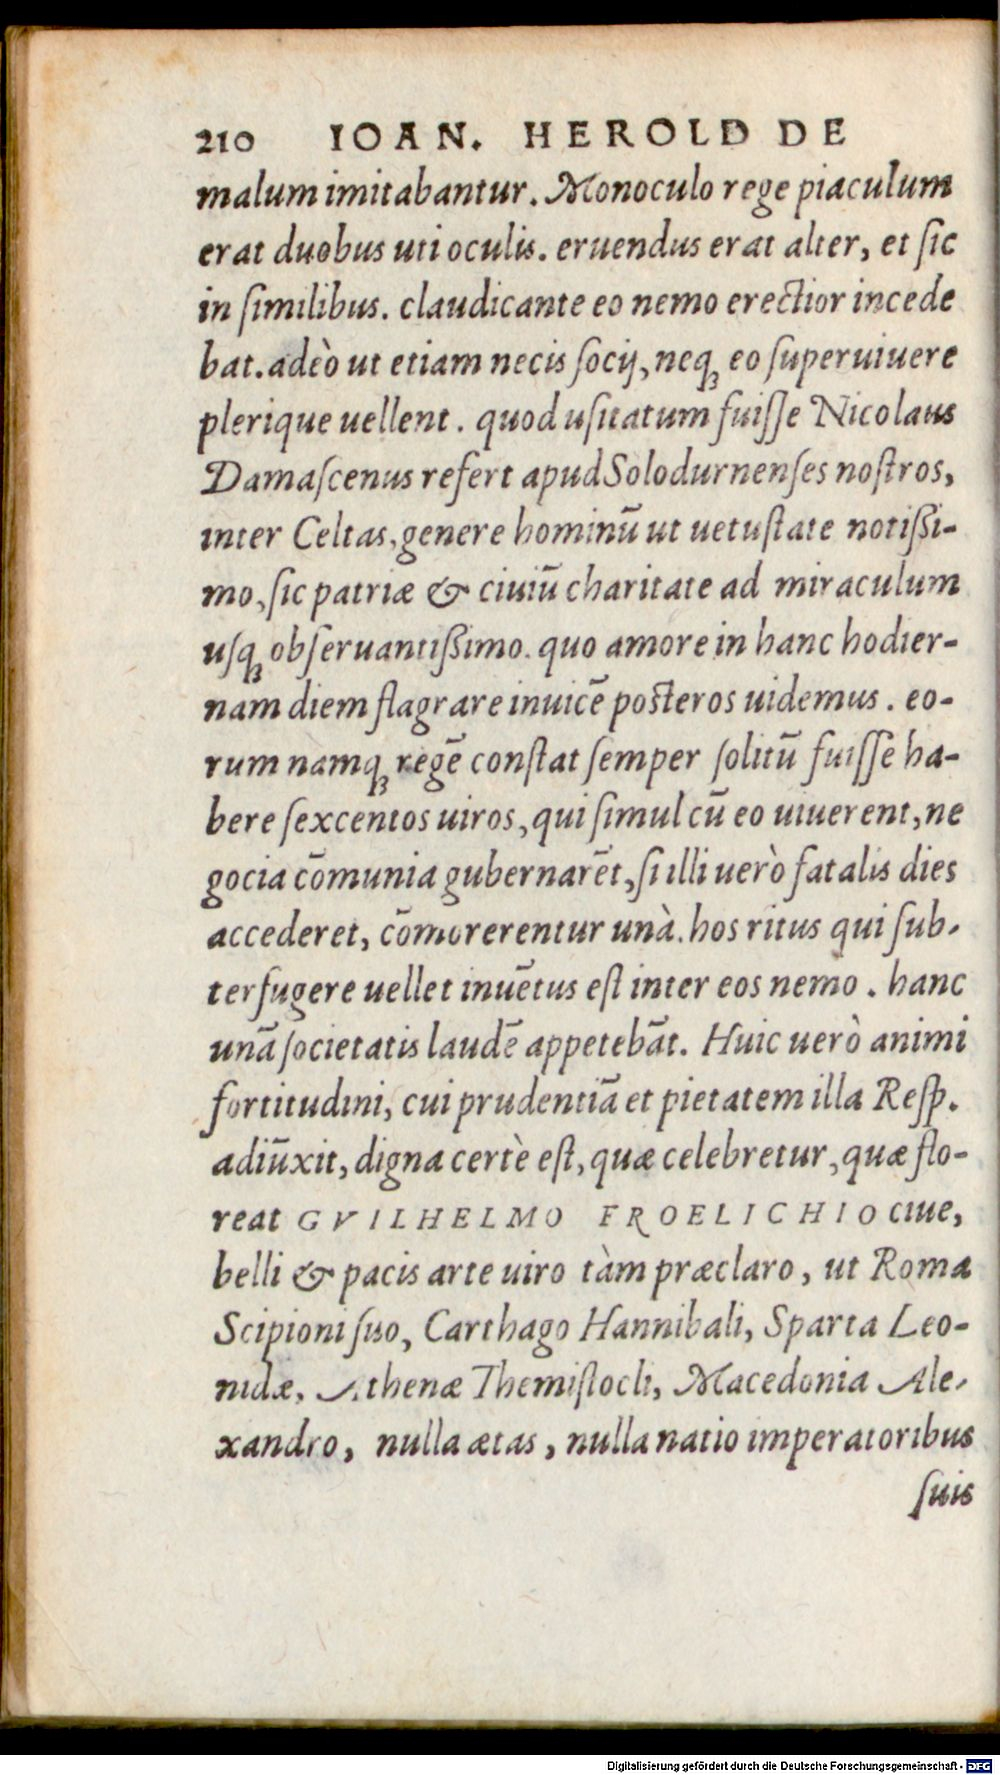 210 IOAN. HEROLD DE
malum imitabantur. Monoculo rege piaculum
erat duobus uti oculis. eruendus erat alter, et ſic
in ſimilibus. claudicante eo nemo erectior incede
bat. adeò ut etiam necis ſocij, neqꝫ eo ſuperuiuere
plerique uellent. quod uſitatum fuiſſe Nicolaus
Damaſcenus refert apud Solodurnenſes noſtros,
inter Celtas, genere hominū ut uetuſtate notiſſi-
mo, ſic patriæ & ciuiū charitate ad miraculum
uſqꝫ obſeruantiſſimo. quo amore in hanc hodier-
nam diem flagrare inuicē poſteros uidemus. eo-
rum namqꝫ regē conſtat ſemper ſolitū fuiſſe ha-
bere ſexcentos uiros, qui ſimul cū eo uiuerent, ne
gocia cōmunia gubernarēt, ſi illi uerò fatalis dies
accederet, cōmorerentur unà. hos ritus qui ſub-
terfugere uellet inuētus eſt inter eos nemo. hanc
unā ſocietatis laudē appetebāt. Huic uerò animi
fortitudini, cui prudentiā et pietatem illa Reſp.
adiūxit, digna certè eſt, quæ celebretur, quæ flo-
reat GVILHELMO FROELICHIO ciue,
belli & pacis arte uiro tàm præclaro, ut Roma
Scipioni ſuo, Carthago Hannibali, Sparta Leo-
nidæ, Athenæ Themiſtocli, Macedonia Ale-
xandro, nulla ætas, nulla natio imperatoribus
ſuis
Digitalisierung gefördert durch die Deutsche Forschungsgemeinschaft - DFG